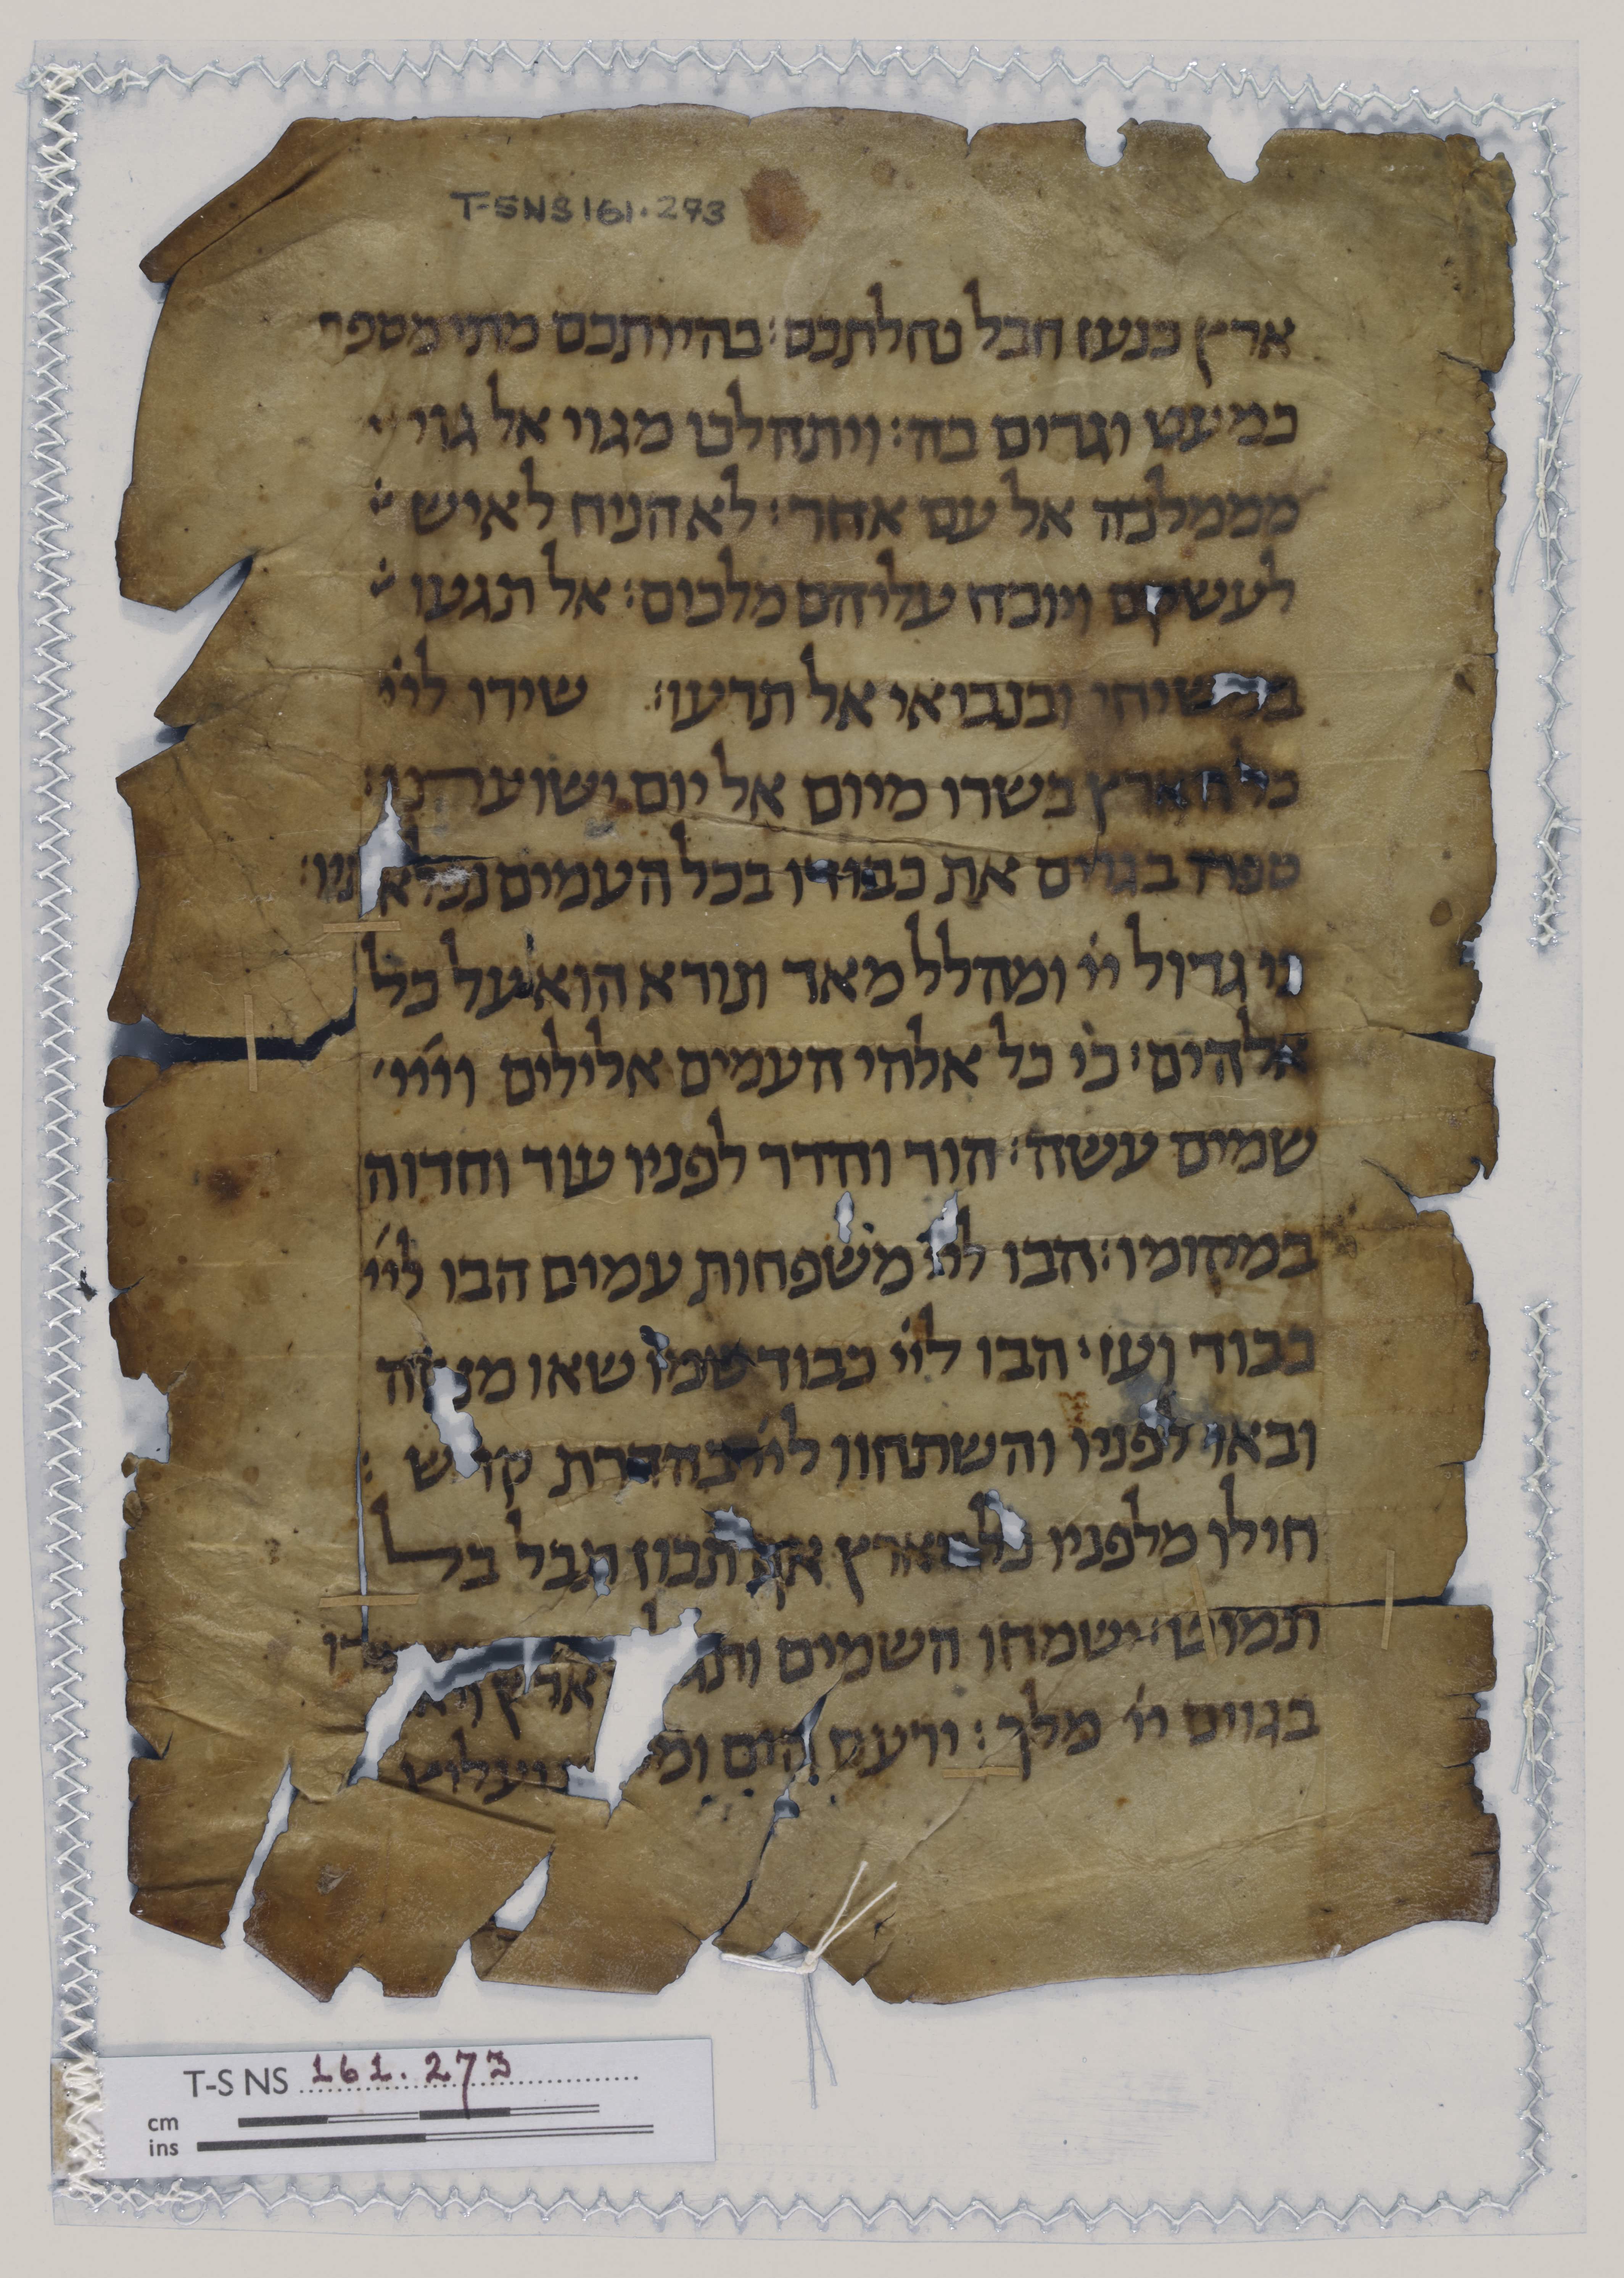 T-S NS 161.273
ארץ כנען חבל נחלתכם: בהיותכם מתי מספר
כמעט וגרים בה: ויתהלכו מגוי אל גוי
מממלכה אל עם אחר: לא הניח לאיש
לעשקם ויוכח עליהם מלכים: אל תגעו
במשיחי ובנביאי אל תרעו: שירו לייי
כל הארץ בשרו מיום אל יום ישועתו:
ספרו בגוים את כבודו בכל העמים נפלאתיו:
כי גדול ייי ומהלל מאד ונורא הוא על כל
אלהים: כי כל אלהי העמים אלילים וייי
שמים עשה: הוד והדר לפניו עוז וחדוה
במקומו: הבו לייי משפחות עמים הבו לייי
כבוד ועז: הבו לייי כבוד שמו שאו מנחה
ובאו לפניו והשתחוו לייי בהדרת קדש:
חילו מלפניו כל הארץ אף תכון תבל בל
תמוט: ישמחו השמים ותגל הארץ
בגוים ייי מלך: ירעם הים יעלוץ
T-S NS 161.273
cm
ins